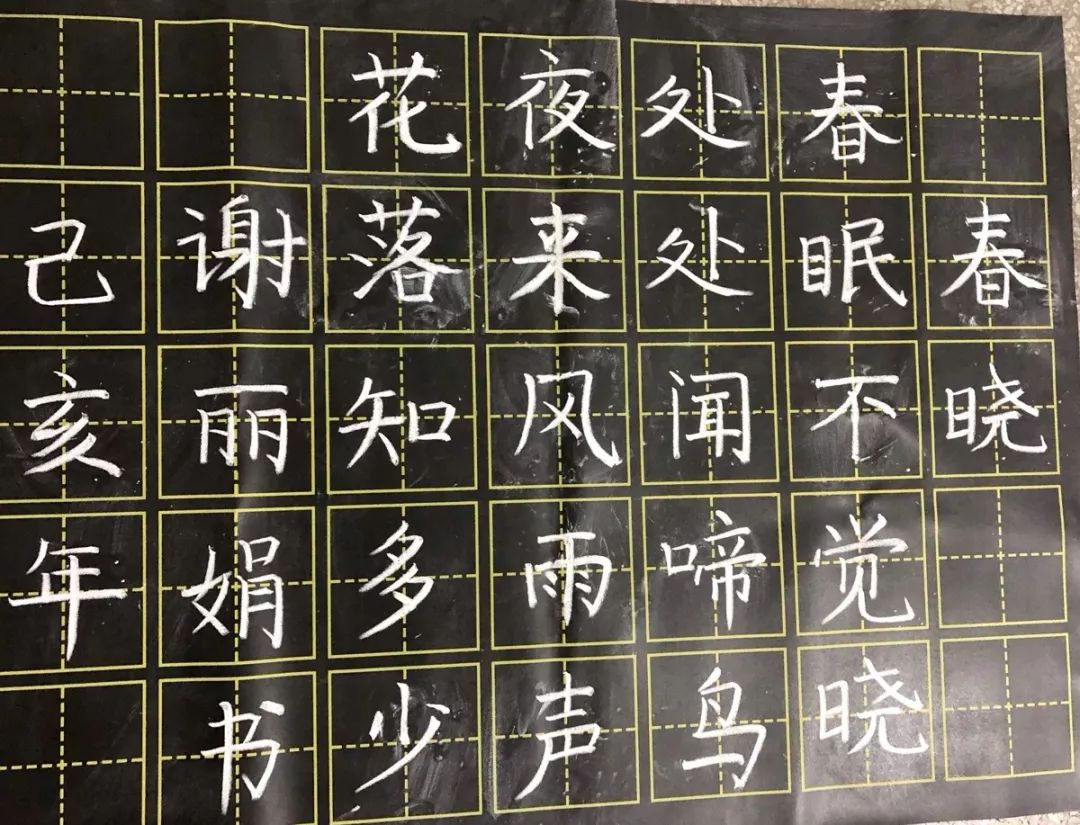 春晓
春眠不觉晓
处处闻啼鸟
夜来风雨声
花落知多少
谢丽娟书
己亥年